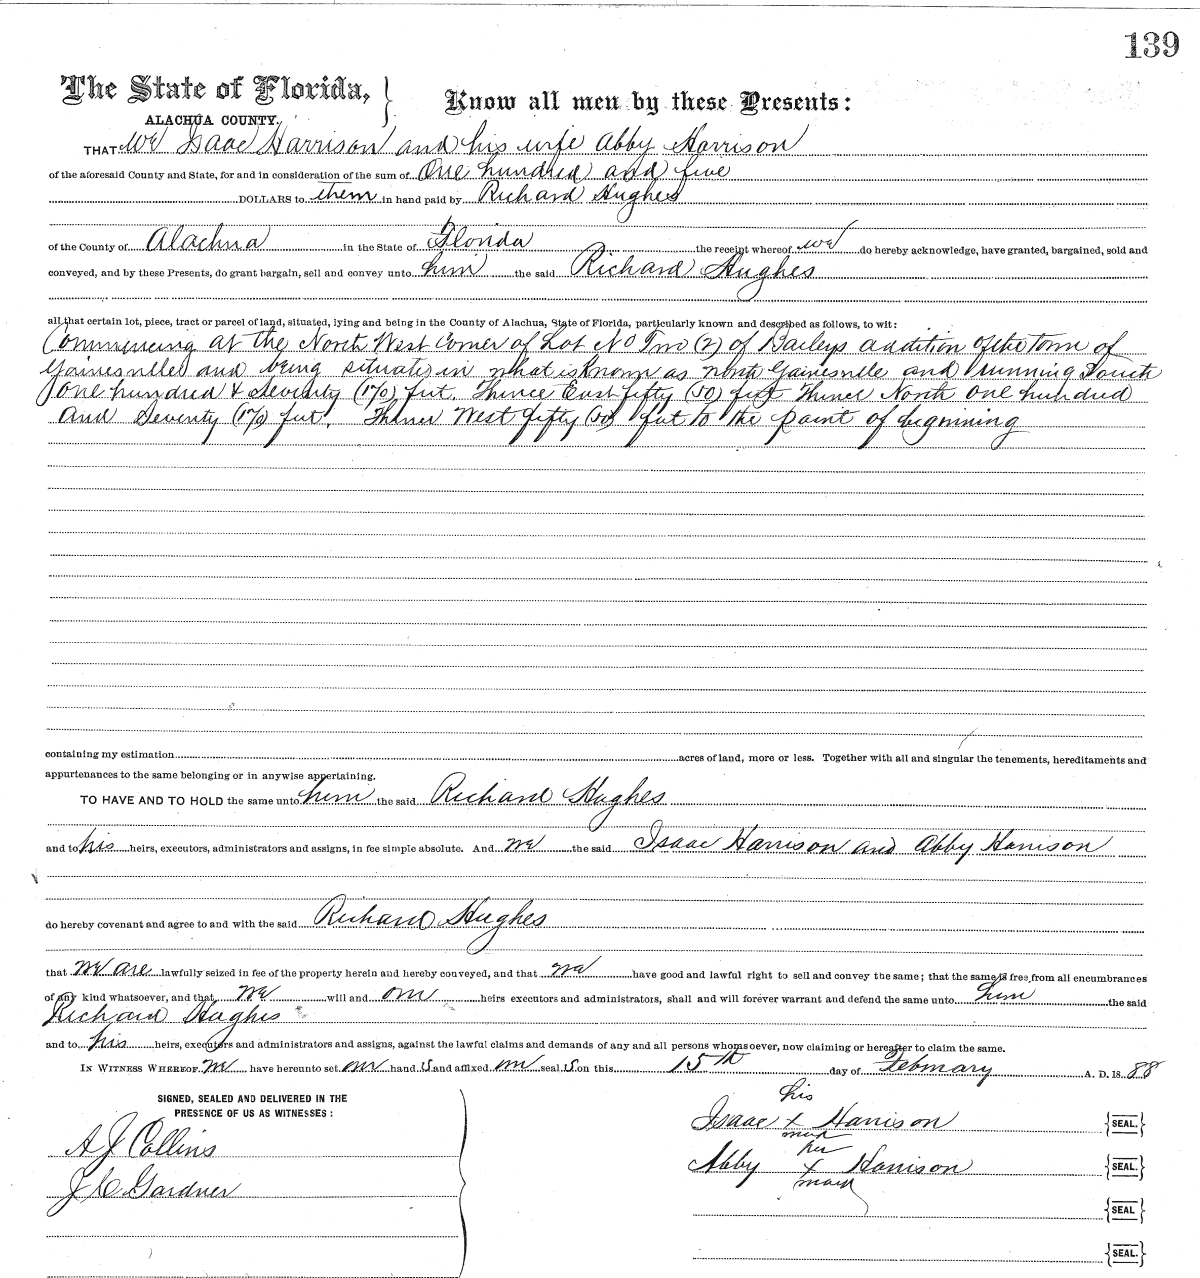 139
The State of Florida, } Know all men by these Presents:
ALACHUA COUNTY.
THAT We Isaac Harrison and his wife Abby Harrison
of the aforesaid County and State, for and in consideration of the sum of One hundred and five
DOLLARS to them in hand paid by Richard Hughes
of the County of Alachua in the State of Florida the receipt whereof we do hereby acknowledge, have granted, bargained, sold and
conveyed, and by these Presents, do grant bargain, sell and convey unto him the said Richard Hughes
all that certain lot, piece, tract or parcel of land, situated, lying and being in the County of Alachua, State of Florida, particularly known and described as follows, to wit:
Commencing at the North West Corner of Lot No Two (2) of Baileys addition of the town of
Gainesville and being situate in what is known as North Gainesville and running South
one hundred & Seventy (170) feet. Thence East fifty (50) feet Thence North one hundred
and Seventy (170) feet. Thence West fifty (50) feet to the point of beginning
containing my estimation acres of land, more or less. Together with all and singular the tenements, hereditaments and
appurtenances to the same belonging or in anywise appertaining.
TO HAVE AND TO HOLD the same unto him the said Richard Hughes
and to his heirs, executors, administrators and assigns, in fee simple absolute. And we the said Isaac Harrison and Abby Harrison
do hereby covenant and agree to and with the said Richard Hughes
that we are lawfully seized in fee of the property herein and hereby conveyed, and that we have good and lawful right to sell and convey the same; that the same is free from all encumbrances
of any kind whatsoever, and that we will and our heirs executors and administrators, shall and will forever warrant and defend the same unto him the said
Richard Hughes
and to his heirs, executors and administrators and assigns, against the lawful claims and demands of any and all persons whomsoever, now claiming or hereafter to claim the same.
IN WITNESS WHEREOF we have hereunto set our hand s and affixed our seal s on this 15th day of February A. D. 18 88
SIGNED, SEALED AND DELIVERED IN THE
PRESENCE OF US AS WITNESSES:
A J Collins
J C Gardner
his
Isaac x Harrison {SEAL.}
mark
her
Abby x Harrison {SEAL.}
mark
{SEAL.}
{SEAL.}